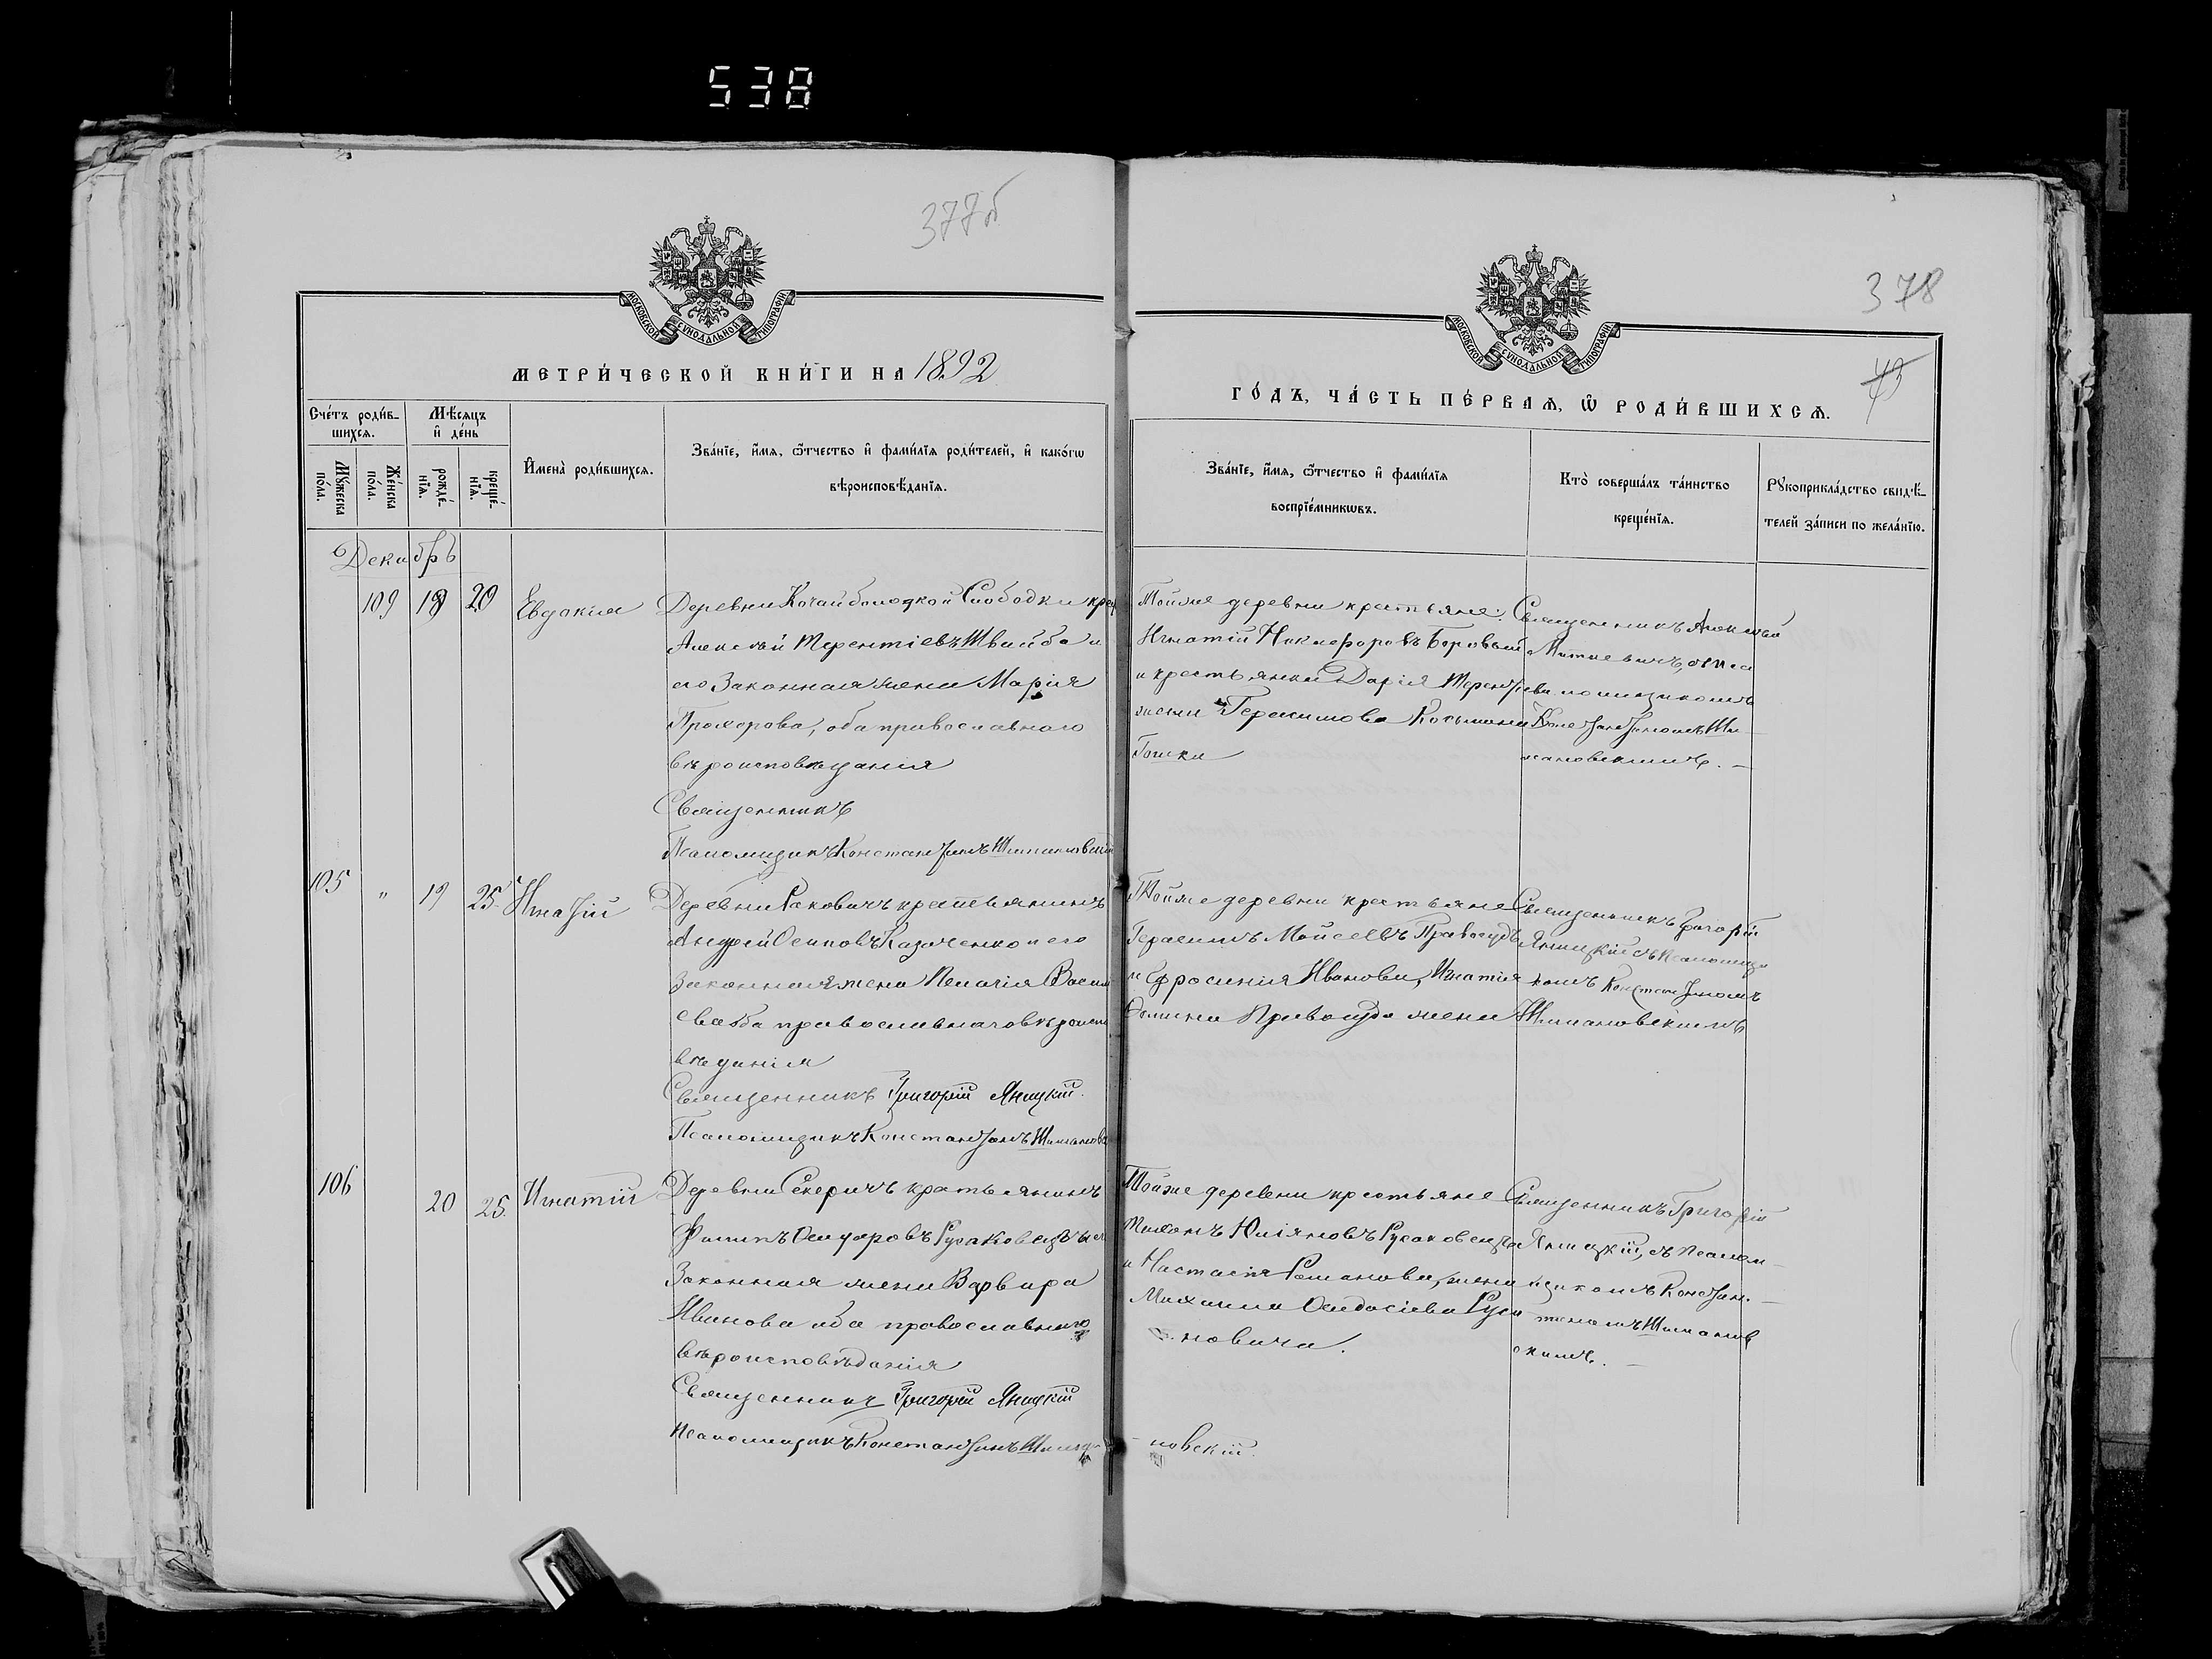 538
377б
378
43
МОСКОВСКОЙ СУНОДАЛЬНОЙ ТИПОГРАФІИ
МОСКОВСКОЙ СУНОДАЛЬНОЙ ТИПОГРАФІИ
МЕТРИ́ЧЕСКОЙ КНИ́ГИ НА 1892
ГО́ДЪ, ЧА́СТЬ ПЕ́РВАѦ, Ѡ РОДИ́ВШИХСѦ.
Сче́тъ роди́в-
шихсѧ.
Мꙋ́жеска по́ла.
Же́нска по́ла.
Мѣ́сѧцъ
и де́нь
рожде́-
нїѧ.
креще́-
нїѧ.
Имена̀ роди́вшихсѧ.
Зва́нїе, и́мѧ, ѻ́тчество и фами́лїѧ роди́телей, и како́гѡ
вѣроисповѣ́данїѧ.
Зва́нїе, и́мѧ, ѻ́тчество и фами́лїѧ
воспрїе́мникѡвъ.
Кто̀ соверша́лъ та́инство
креще́нїѧ.
Рꙋкоприкла́дство свидѣ́-
телей за́писи по жела́нїю.
Декабрь
109 19 20 Евдокія
Деревни Слободки
Алексѣй Терентіевъ Швайбо и
его Законная жена Марія
Прохорова, оба православнаго
вѣроисповѣданія
Священникъ
Псаломщикъ Константинъ Шимановскій
Тойже деревни крестьяне:
Игнатій Никифоровъ Боровый
и крестьянка Дарія
жена Герасимова
Священникъ
псаломщикомъ
Константиномъ Ши-
мановскимъ. –
105 " 19 25 Игнатій
Деревни Раковичъ крестьянинъ
Андрей Осиповъ Казаченко и его
законная жена Пелагія
оба православнаго вѣроиспо
вѣданія
Священникъ Григорій Яницкій.
Псаломщикъ Константинъ Шиманов
Тойже деревни крестьяне
Герасимъ Мойсеевъ Правосудъ
и Ефросинія Иванова, Игнатія
Ѳомина Правосуда жена
Священникъ Григорій
Яницкій съ псаломщи
комъ Константиномъ
Шимановскимъ
106 20 25. Игнатій
Деревни Секеричъ крестьянинъ
Филипъ Русаковичъ и его
Законная жена Варвара
Иванова оба православнаго
вѣроисповѣданія
Священникъ Григорій Яницкій
Псаломщикъ Константинъ Шима
новскій.
Тойже деревни крестьяне
и Настасія Романова, жена
Михаила Ѳеодосіева Руса
ковича.
Священникъ Григорій
Яницкій, съ псалом-
щикомъ Констан-
тиномъ Шиманов
скимъ. –